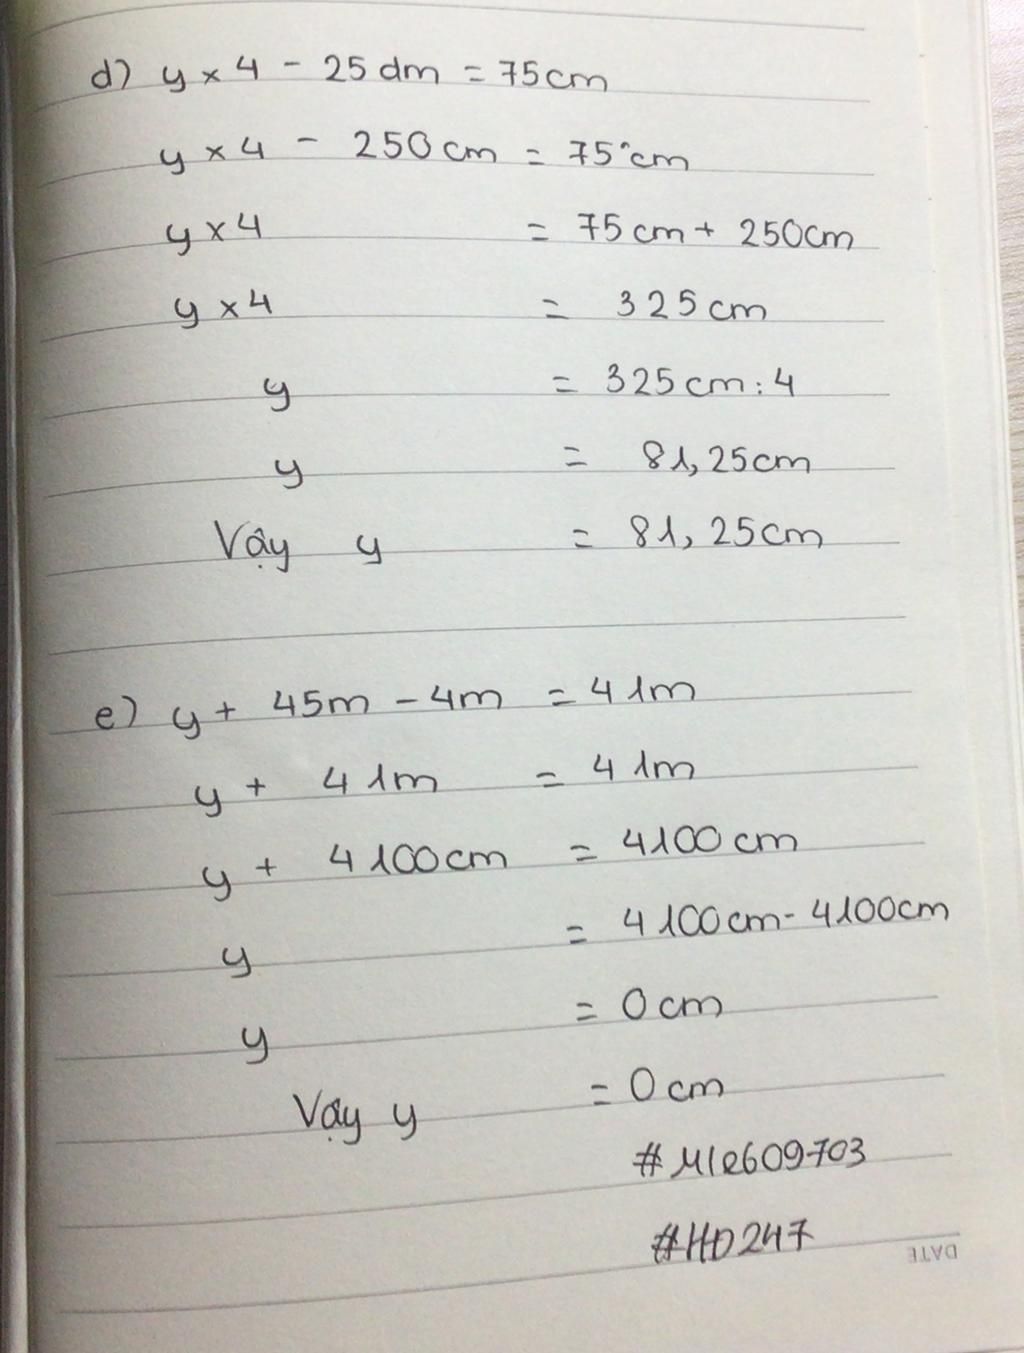 d) y × 4 - 25 dm = 75cm
y × 4 - 250cm = 75cm
y × 4 = 75cm + 250cm
y × 4 = 325cm
y = 325cm : 4
y = 81,25cm
Vậy y = 81,25cm
e) y + 45m - 4m = 41m
y + 41m = 41m
y + 4100cm = 4100cm
y = 4100cm - 4100cm
y = 0cm
Vậy y = 0cm
#HD247
DATE